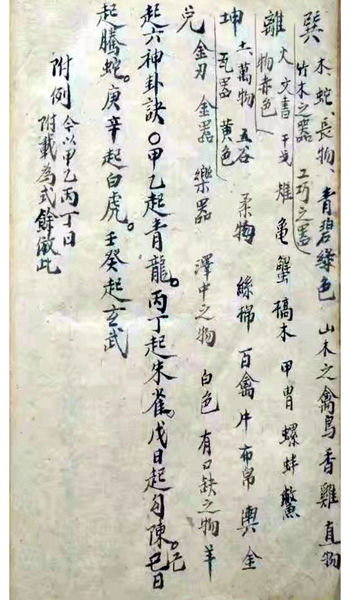 巽 木 蛇 長物 青碧綠色 山木之禽鳥 香 雞 直物
竹木之器 工巧之器
離 火 文書 干戈 雉 龜 蟹 槁木 甲冑 螺 蚌 鱉
物赤色
坤 土 萬物 五谷 柔物 絲棉 百禽 牛 布帛 輿 金
瓦器 黃色
兌 金刃 金器 樂器 澤中之物 白色 有口缺之物 羊
起六神卦訣○甲乙起青龍。丙丁起朱雀。戊日起勾陳。己日
起騰蛇。庚辛起白虎。壬癸起玄武
附例 今以甲乙丙丁日
附載為式餘倣此